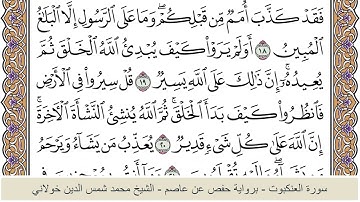 فَقَدْ كَذَّبَ أُمَمٌ مِّن قَبْلِكُمْ ۖ وَمَا عَلَى الرَّسُولِ إِلَّا الْبَلَاغُ
الْمُبِينُ ۝١٨ أَوَلَمْ يَرَوْا كَيْفَ يُبْدِئُ اللَّهُ الْخَلْقَ ثُمَّ
يُعِيدُهُ ۚ إِنَّ ذَٰلِكَ عَلَى اللَّهِ يَسِيرٌ ۝١٩ قُلْ سِيرُوا فِي الْأَرْضِ
فَانظُرُوا كَيْفَ بَدَأَ الْخَلْقَ ۚ ثُمَّ اللَّهُ يُنشِئُ النَّشْأَةَ الْآخِرَةَ ۚ
إِنَّ اللَّهَ عَلَىٰ كُلِّ شَيْءٍ قَدِيرٌ ۝٢٠ يُعَذِّبُ مَن يَشَاءُ وَيَرْحَمُ
سورة العنكبوت - برواية حفص عن عاصم - الشيخ محمد شمس الدين خولاني